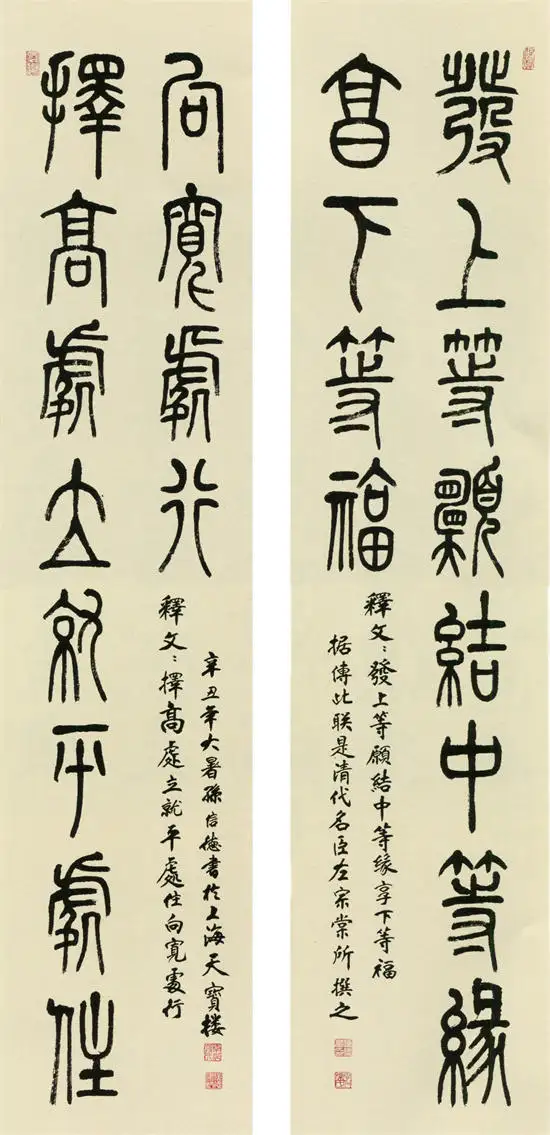 發上等願結中等緣
享下等福
釋文：發上等願結中等緣享下等福
据傳此联是清代名臣左宗棠所撰之
擇高處立就平處住
向寬處行
釋文：擇高處立就平處住向寬處行
辛丑年大暑孫信德書於上海天寶楼